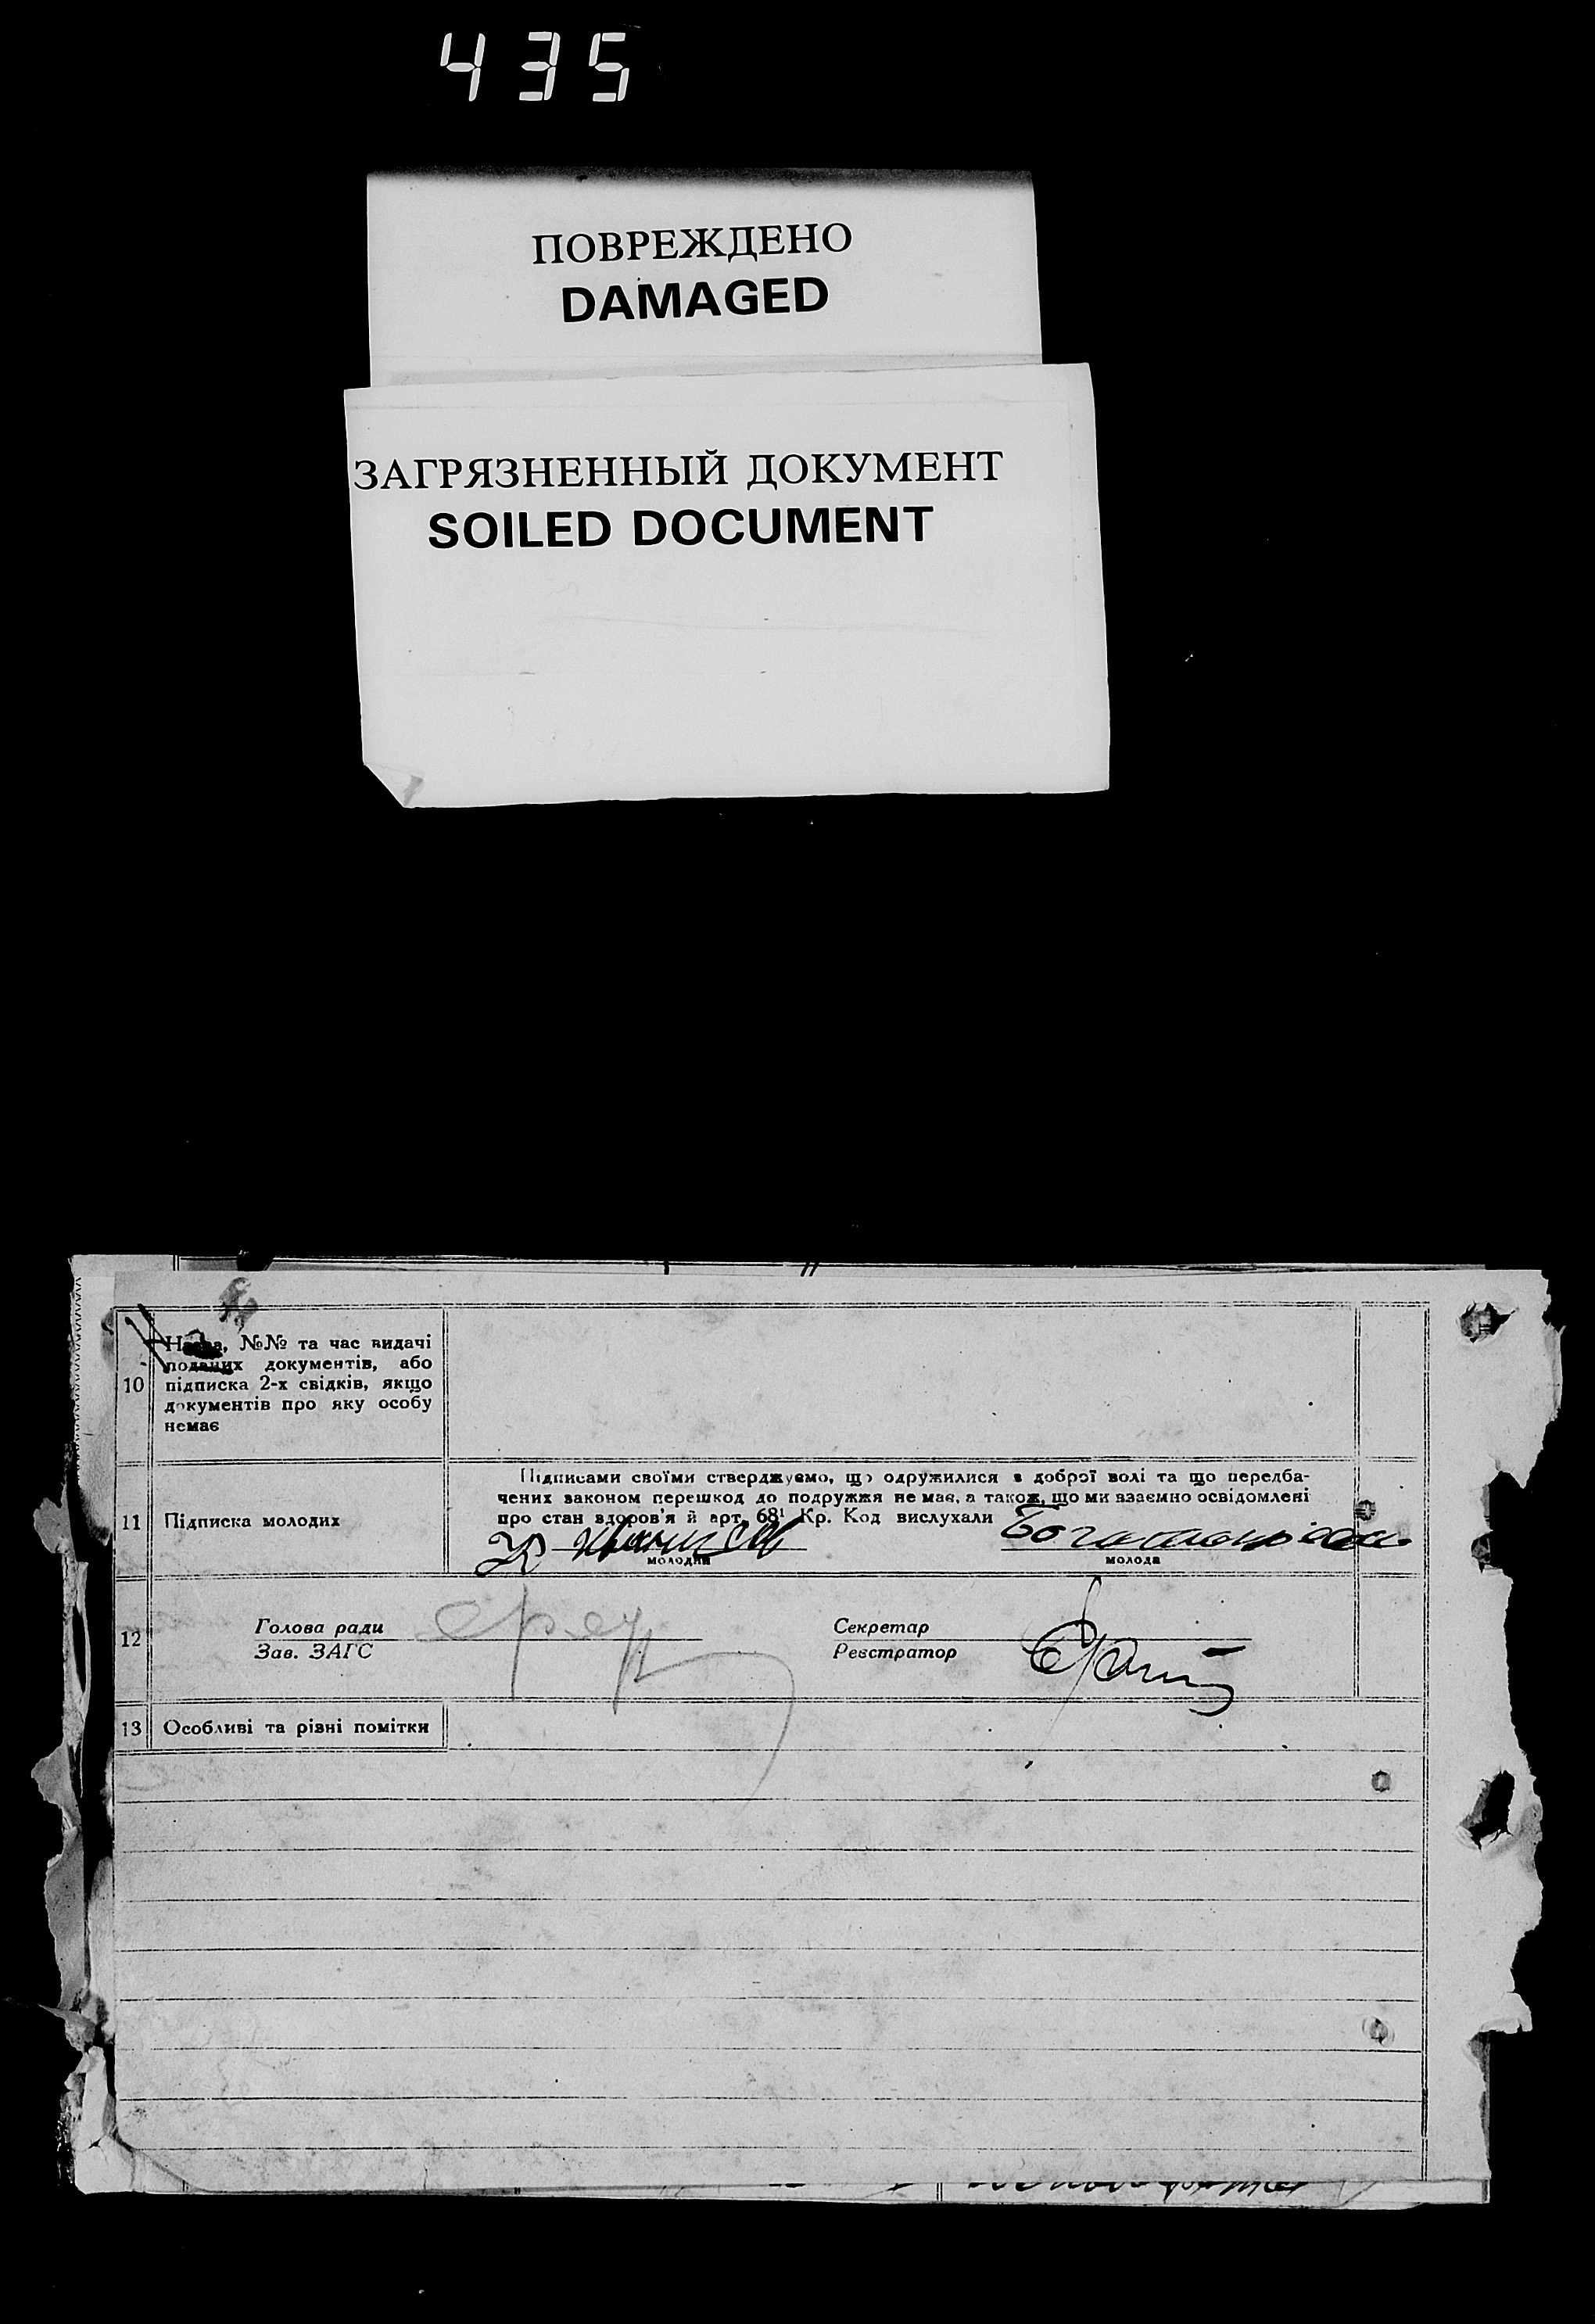 435
ПОВРЕЖДЕНО
DAMAGED
ЗАГРЯЗНЕННЫЙ ДОКУМЕНТ
SOILED DOCUMENT
10
Назва, №№ та час видачі
поданих документів, або
підписка 2-х свідків, якщо
документів про яку особу
немає
11
Підписка молодих
Підписами своїми стверджуємо, що одружилися з доброї волі та що передба-
чених законом перешкод до подружжя не має, а також, що ми взаємно освідомлені
про стан здоров'я й арт. 68¹ Кр. Код вислухали
молодий
молода
12
Голова ради
Зав. ЗАГС
Секретар
Реєстратор
13
Особливі та різні помітки